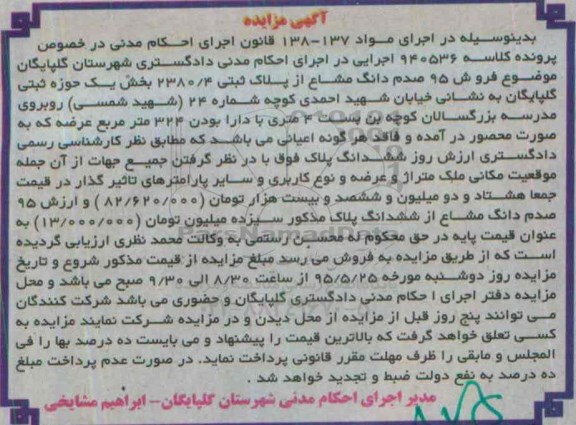 آگهی مزایده
بدینوسیله در اجرای مواد ۱۳۷-۱۳۸ قانون اجرای احکام مدنی در خصوص
پرونده کلاسه ۹۴۰۵۳۶ اجرایی در اجرای احکام مدنی دادگستری شهرستان گلپایگان
موضوع فروش ۹۵ صدم دانگ مشاع از پلاک ثبتی ۲۳۸۰/۴ بخش یک حوزه ثبتی
گلپایگان به نشانی خیابان شهید احمدی کوچه شماره ۲۴ (شهید شمسی) روبروی
مدرسه بزرگسالان کوچه بن بست ۴ متری با دارا بودن ۳۲۴ متر مربع عرضه که به
صورت محصور در آمده و فاقد هر گونه اعیانی می باشد که مطابق نظر کارشناسی رسمی
دادگستری ارزش روز ششدانگ پلاک فوق با در نظر گرفتن جمیع جهات از آن جمله
موقعیت مکانی ملک متراژ و عرضه و نوع کاربری و سایر پارامترهای تاثیر گذار در قیمت
جمعا هشتاد و دو میلیون و ششصد و بیست هزار تومان (۸۲/۶۲۰/۰۰۰) و ارزش ۹۵
صدم دانگ مشاع از ششدانگ پلاک مذکور سیزده میلیون تومان (۱۳/۰۰۰/۰۰۰) به
عنوان قیمت پایه در حق محکوم به محسن رستمی به وکالت محمد نظری ارزیابی گردیده
است که از طریق مزایده به فروش می رسد مبلغ مزایده از قیمت مذکور شروع و تاریخ
مزایده روز دوشنبه مورخه ۹۵/۵/۲۵ از ساعت ۸/۳۰ الی ۹/۳۰ صبح می باشد و محل
مزایده دفتر اجرای احکام مدنی دادگستری گلپایگان و حضوری می باشد شرکت کنندگان
می توانند پنج روز قبل از مزایده از محل دیدن و در مزایده شرکت نمایند مزایده به
کسی تعلق خواهد گرفت که بالاترین قیمت را پیشنهاد و می بایست ده درصد بها را فی
المجلس و مابقی را ظرف مهلت مقرر قانونی پرداخت نماید. در صورت عدم پرداخت مبلغ
ده درصد به نفع دولت ضبط و تجدید خواهد شد .
مدیر اجرای احکام مدنی شهرستان گلپایگان- ابراهیم مشایخی